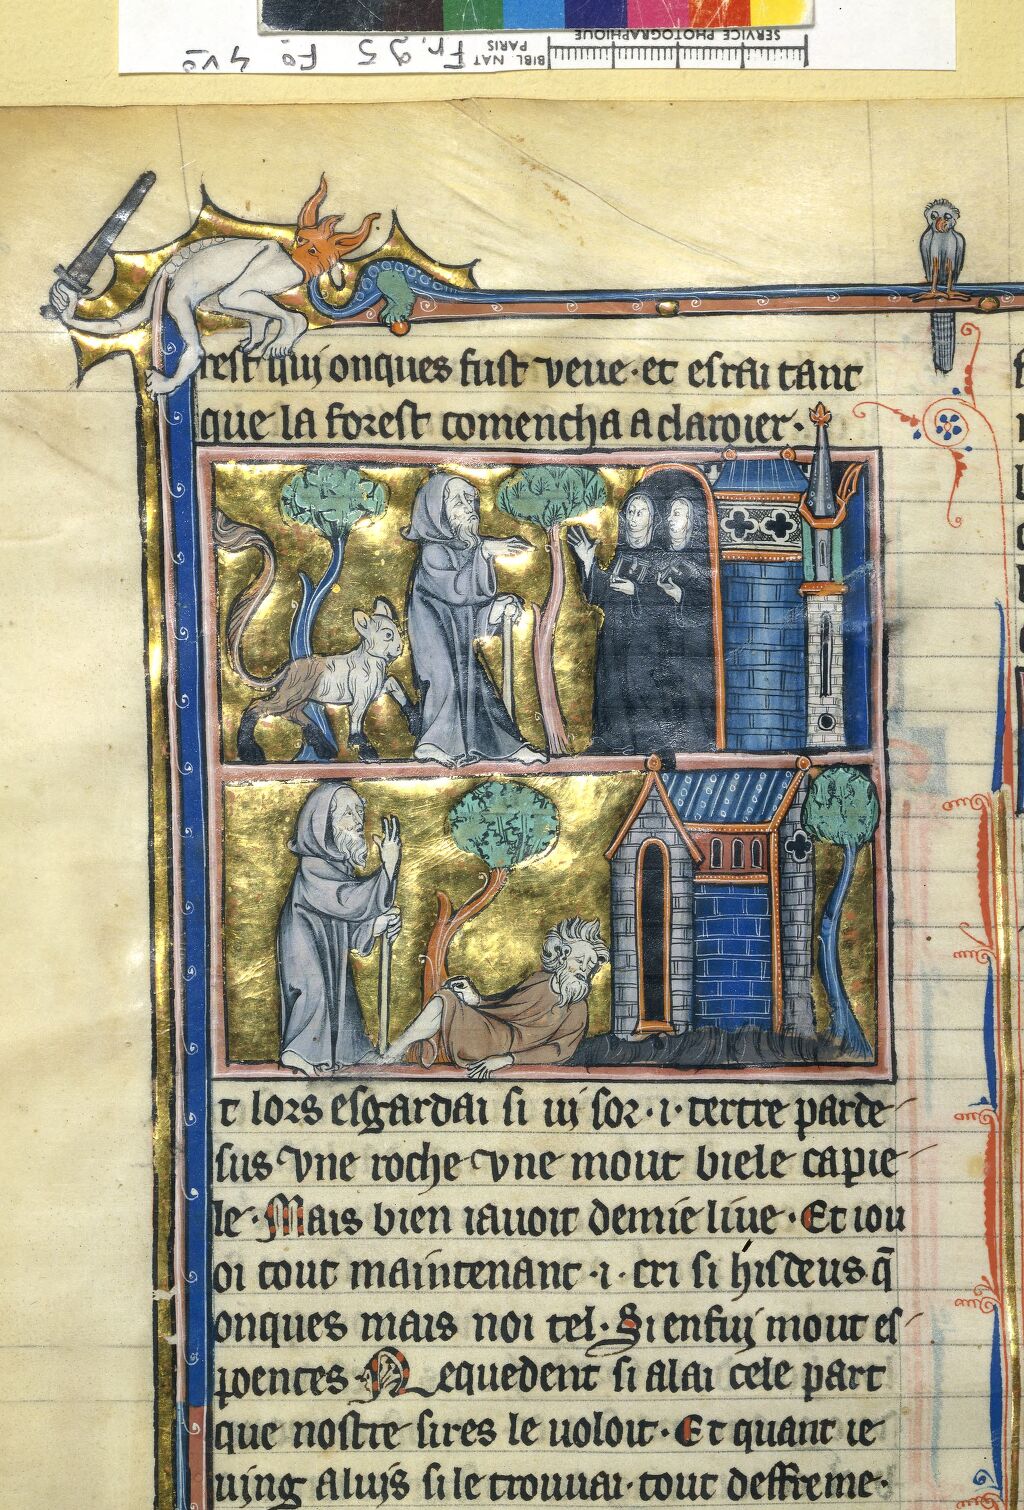 SERVICE PHOTOGRAPHIQUE
BIBL NAT
PARIS
Fr. 95 Fo 4vo
rest qui onques fust veue·et esrai tant
que la forest comencha a claroier·
t lors esgardai si ui sor·i·tertre parde
sus vne roche vne mout biele capie
le·Mais bien iauoit demie liue·Et iou
oi tout maintenant·i·cri si hisdeus q̄
onques mais noi tel·Si enfui mout es
poentes Nequedent si alai cele part
que nostre sires le uoloit·Et quant ie
uing a luys si le trouuai tout deffreme·